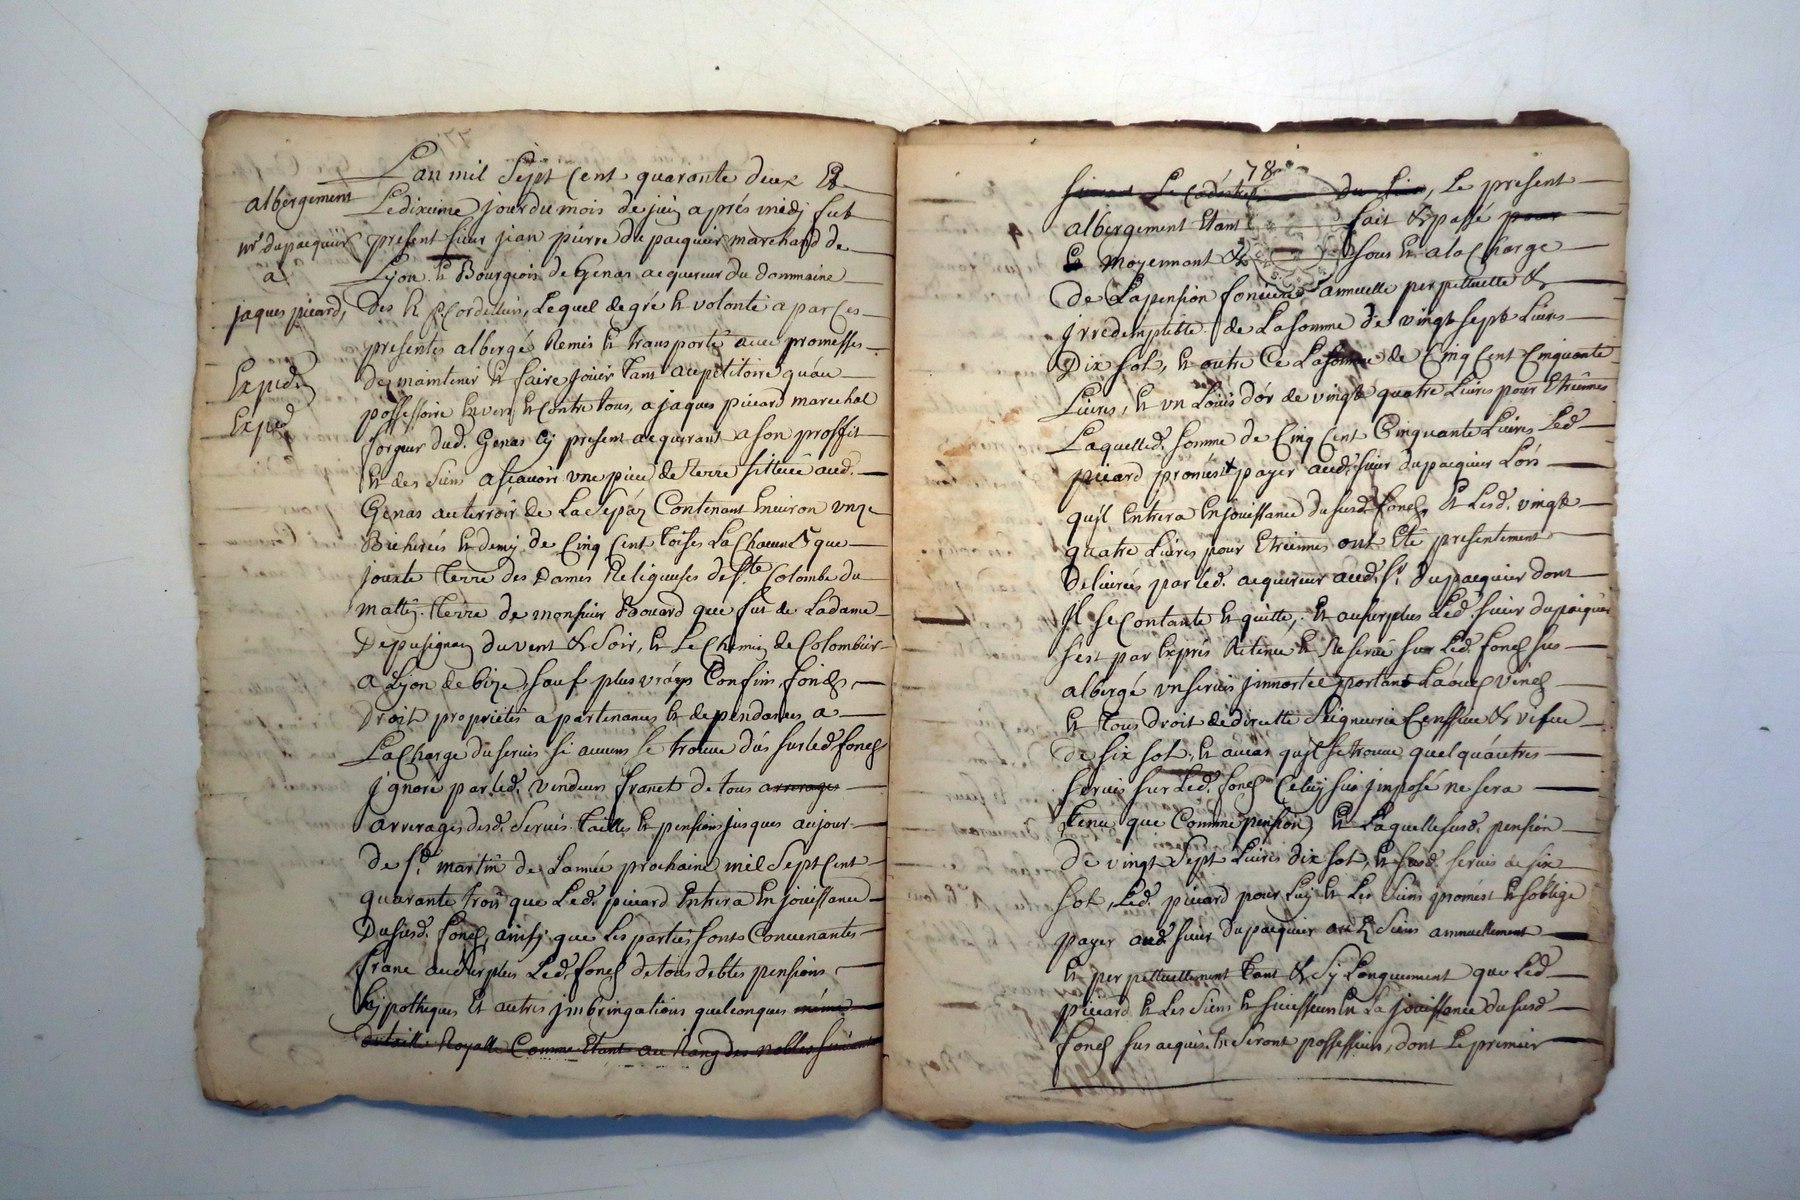 L'an mil Sept Cent quarante deux Et
albergement
Le dixieme jour du mois de juin aprés midj fut
mr. dupacquier
present sieur jean pierre dupacquier marchand de
a
Lyon et Bourgeois de Genas acquereur du dommaine
jaques picard,
des RR. pp. Cordelliers, Lequel de gré et volonté a par Ces
presentes albergé Remis et transporté avec promesses
Exped.
de maintenir et faire jouir tant au petitoire qu'au
possessoire Envers et Contre tous, a jaques picard marechal
Exped.
forgeur dud. Genas Cy present acquerant a son proffit
et des siens ascavoir une piece de terre scittuée aud.
Genas au terroir de La Contenant Environ unze
Bicherées et demy de Cinq Cent toises La Chacune que
jouxte terre des Dames Religieuses de Ste. Colombe du
mattin. terre de monsieur Bouard que fut de La dame
De pusignan du vent et Soir, et Le Chemin de Colombier
a Lyon de bize, sauf plus vrays Confins, fonds,
Droit proprietés apartenances et dependances a
La Charge du servis si aucuns se trouve dus sur led. fonds
jgnoré par led. vendeur franct de tous arrerages
arrerages desd. Servis tailles et pensions jusques au jour
de St. martin de L'année prochaine mil Sept Cent
quarante trois que Led. picard Entrera En jouissance
Du susd. fonds, ainsy que Les parties sont Convenantes
franc au surplus Led. fonds de tous debtes pensions
hypotheques Et autres jmbringations quelconques même
de taille Royalle Comme Etant au Rang des nobles suivant
78
suivant Le Cadastre du Lieu, Le present
albergement Etant fait et passé pour
et moyennant et sous et a la Charge
de La pension fonciere annuelle perpettuelle et
jrredemptible de La somme de vingt sept Livres
Dix sol, et outre Ce La somme de Cinq Cent Cinquante
Livres, et un Louis d'or de vingt quatre Livres pour Etrennes
Laquelle d. somme de Cinq Cent Cinquante Livres Led.
picard promest payer aud. sieur dupacquier Lors
qu'il Entrera En jouissance du susd. fonds, Et Lesd. vingt
quatre Livres pour Etrennes ont Eté presentement
Delivrées par led. acquereur aud. Sr. Dupacquier dont
Il se Contante et quitte, et au surplus Led. sieur dupacquier
s'est par Exprés Retenu et Reservé sur Led. fonds sus
albergé un servis jmposé portant Laods vends
et tous droit de directte Seigneurie Censsive et
de six sol, et au cas qu'il se trouve quelqu'autres
servis sur Led. fonds Celuy sus jmposé ne sera
tenu que Comme pension, Et Laquelle susd. pension
De vingt Sept Livres dix sol, et susd. servis de six
Sol, Led. picard pour Luy et Les siens promest et s'oblige
payer aud. sieur dupacquier ou es siens annuellement
et perpettuellement tant et sy Longuement que Led.
picard et Les Siens et successeurs En La jouissance du susd.
fonds sus acquis En seront possesseurs, dont Le premier